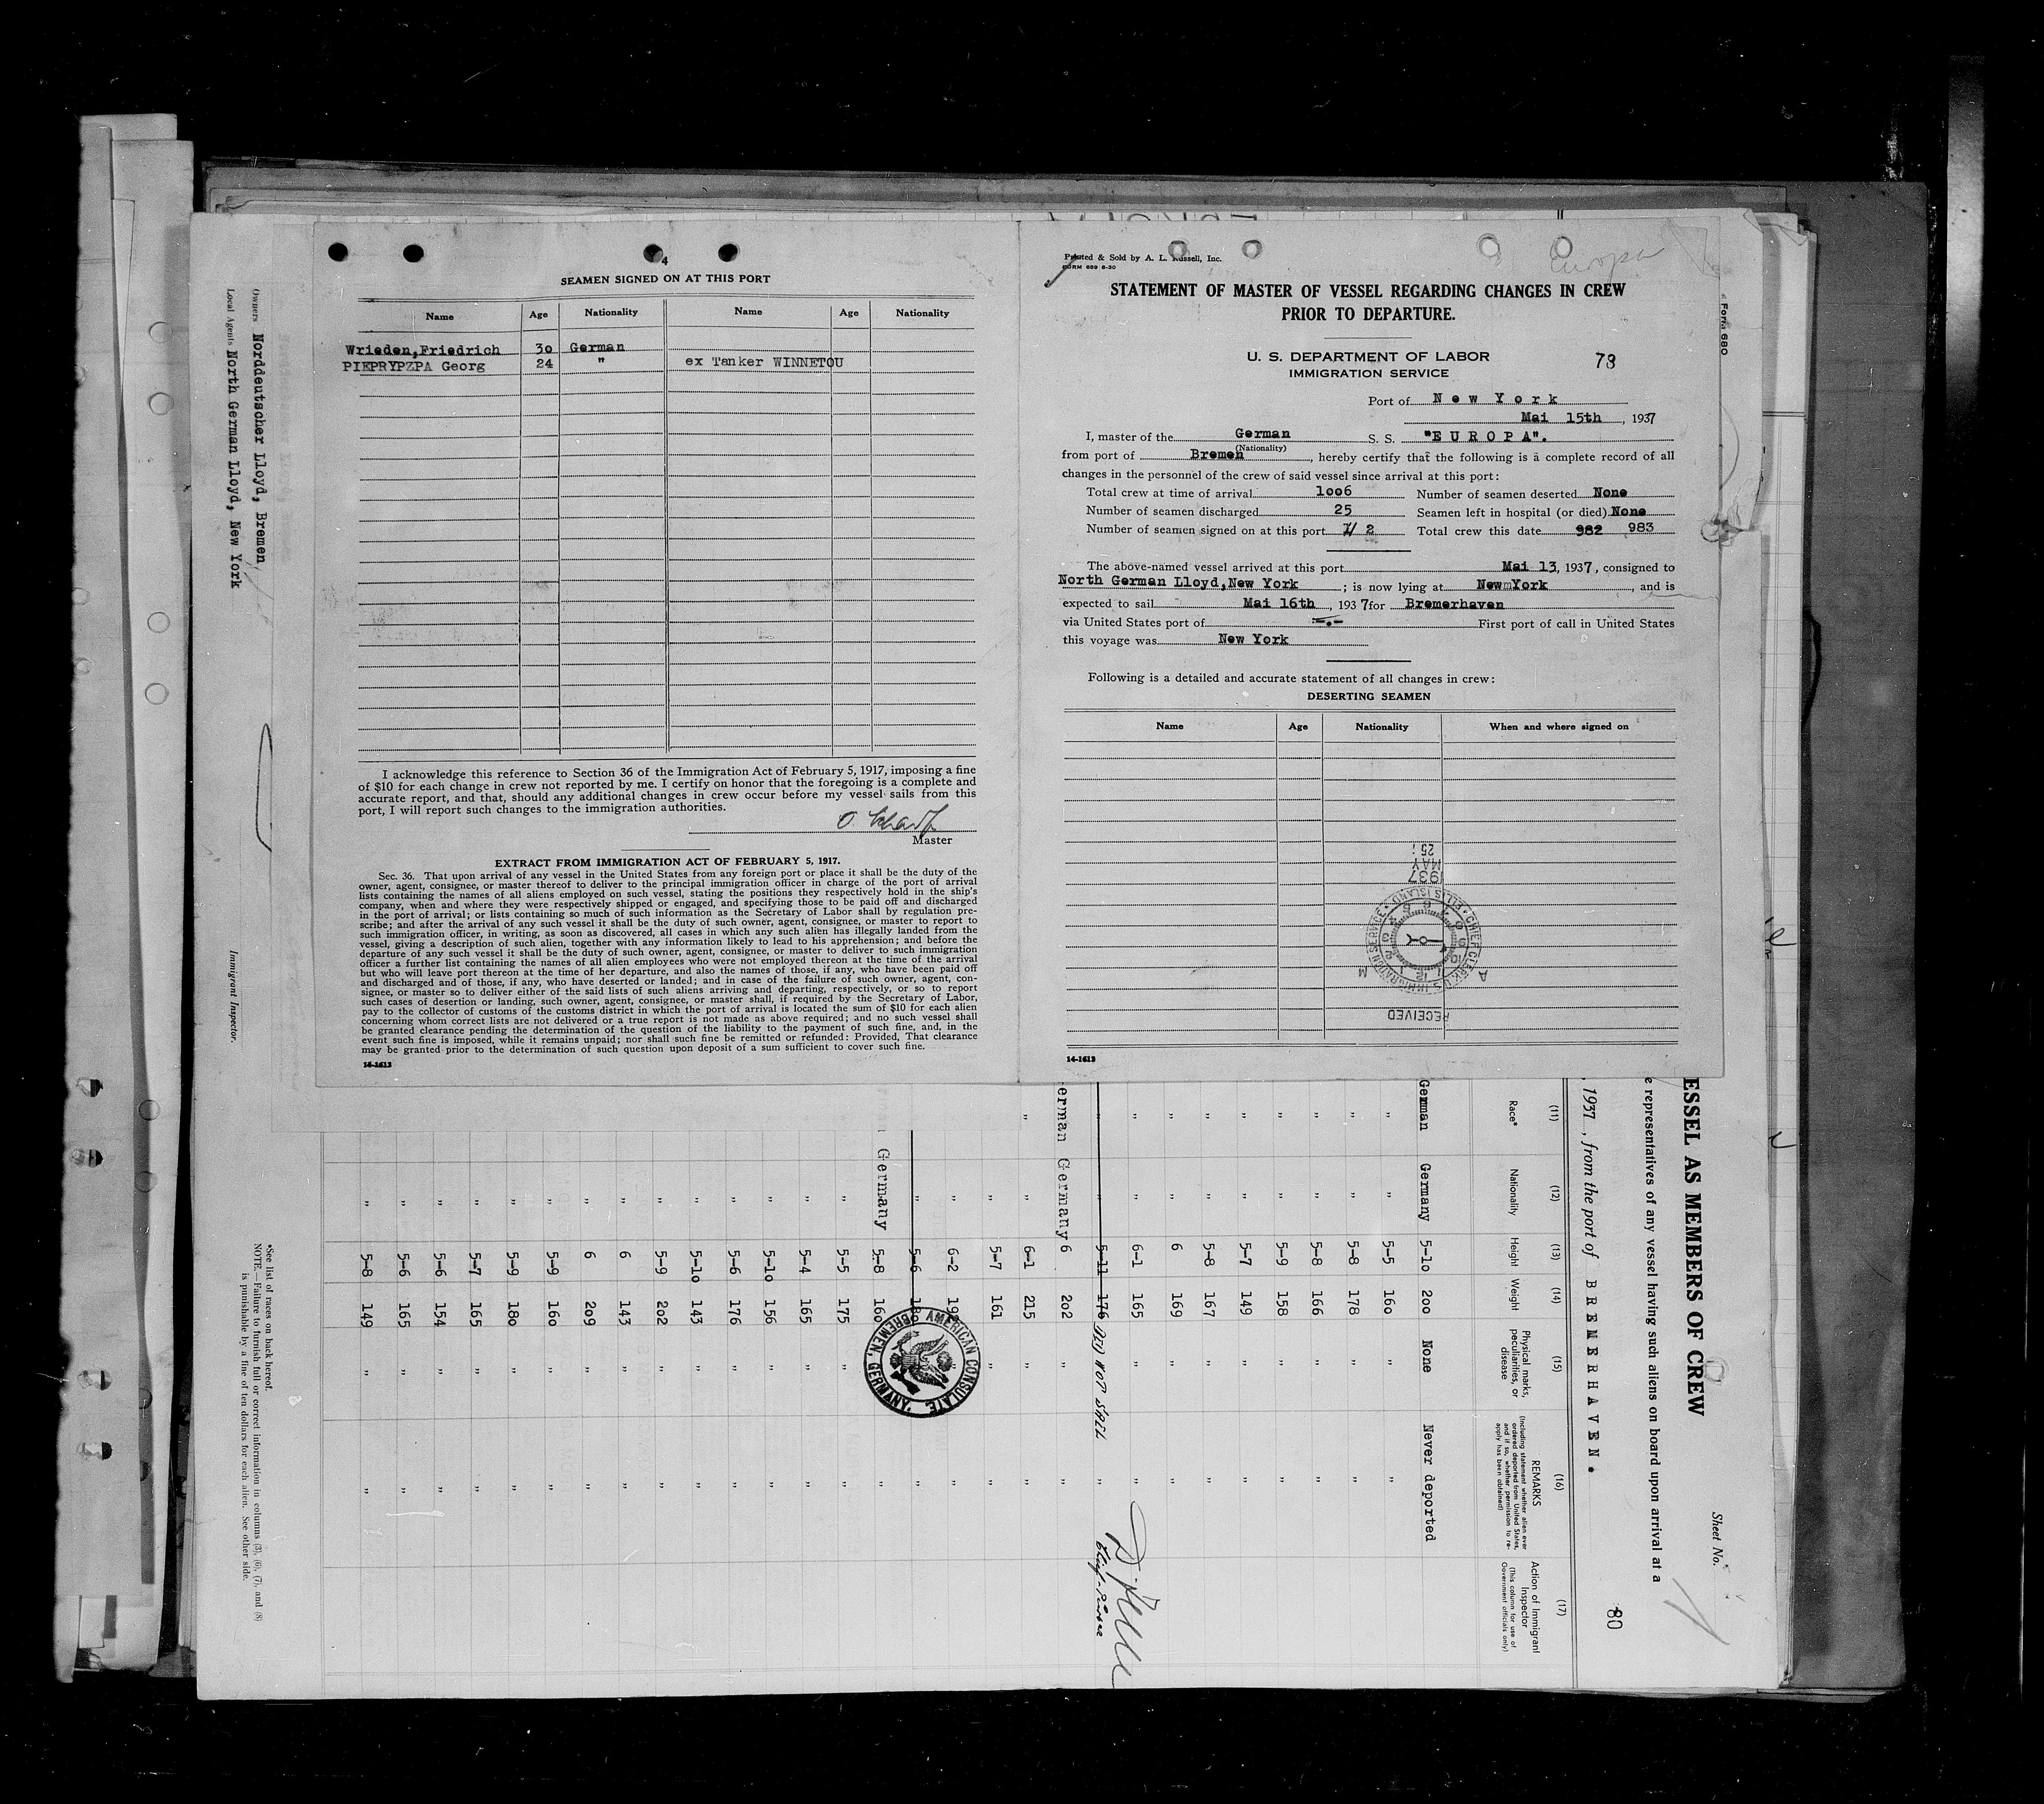 4
SEAMEN SIGNED ON AT THIS PORT
Name Age Nationality Name Age Nationality
Wrieden,Friedrich 3o German
PIEPRYPZPA Georg 24 " ex Tanker WINNETOU
I acknowledge this reference to Section 36 of the Immigration Act of February 5, 1917, imposing a fine
of $10 for each change in crew not reported by me. I certify on honor that the foregoing is a complete and
accurate report, and that, should any additional changes in crew occur before my vessel sails from this
port, I will report such changes to the immigration authorities.
O. Scharf
Master
EXTRACT FROM IMMIGRATION ACT OF FEBRUARY 5, 1917.
Sec. 36. That upon arrival of any vessel in the United States from any foreign port or place it shall be the duty of the
owner, agent, consignee, or master thereof to deliver to the principal immigration officer in charge of the port of arrival
lists containing the names of all aliens employed on such vessel, stating the positions they respectively hold in the ship's
company, when and where they were respectively shipped or engaged, and specifying those to be paid off and discharged
in the port of arrival; or lists containing so much of such information as the Secretary of Labor shall by regulation pre-
scribe; and after the arrival of any such vessel it shall be the duty of such owner, agent, consignee, or master to report to
such immigration officer, in writing, as soon as discovered, all cases in which any such alien has illegally landed from the
vessel, giving a description of such alien, together with any information likely to lead to his apprehension; and before the
departure of any such vessel it shall be the duty of such owner, agent, consignee, or master to deliver to such immigration
officer a further list containing the names of all alien employees who were not employed thereon at the time of the arrival
but who will leave port thereon at the time of her departure, and also the names of those, if any, who have been paid off
and discharged and of those, if any, who have deserted or landed; and in case of the failure of such owner, agent, con-
signee, or master so to deliver either of the said lists of such aliens arriving and departing, respectively, or so to report
such cases of desertion or landing, such owner, agent, consignee, or master shall, if required by the Secretary of Labor,
pay to the collector of customs of the customs district in which the port of arrival is located the sum of $10 for each alien
concerning whom correct lists are not delivered or a true report is not made as above required; and no such vessel shall
be granted clearance pending the determination of the question of the liability to the payment of such fine, and, in the
event such fine is imposed, while it remains unpaid; nor shall such fine be remitted or refunded: Provided, That clearance
may be granted prior to the determination of such question upon deposit of a sum sufficient to cover such fine.
14-1613
Europa
Printed & Sold by A. L. Russell, Inc.
FORM 689 8-30
STATEMENT OF MASTER OF VESSEL REGARDING CHANGES IN CREW
PRIOR TO DEPARTURE.
U. S. DEPARTMENT OF LABOR
IMMIGRATION SERVICE
78
Port of New York
Mai 15th , 1937
I, master of the German S. S. "EUROPA".
(Nationality)
from port of Bremen , hereby certify that the following is a complete record of all
changes in the personnel of the crew of said vessel since arrival at this port:
Total crew at time of arrival 1oo6 Number of seamen deserted None
Number of seamen discharged 25 Seamen left in hospital (or died) None
Number of seamen signed on at this port 1/ 2 Total crew this date 982 983
The above-named vessel arrived at this port Mai 13, 1937, consigned to
North German Lloyd,New York ; is now lying at NewmYork , and is
expected to sail Mai 16th , 1937 for Bremerhaven
via United States port of -.- First port of call in United States
this voyage was New York
Following is a detailed and accurate statement of all changes in crew:
DESERTING SEAMEN
Name Age Nationality When and where signed on
RECEIVED
CHIEF CLERK U.S. IMMIGRATION SERVICE ELLIS ISLAND
A M
1937
MAY
25
14-1613
Form 680
Owners Norddeutscher Lloyd, Bremen
Local Agents North German Lloyd, New York
Immigrant Inspector.
Sheet No.
80
ESSEL AS MEMBERS OF CREW
e representatives of any vessel having such aliens on board upon arrival at a
, 1937 , from the port of BREMERHAVEN.
(11) (12) (13) (14) (15) (16) (17)
Race* Nationality Height Weight Physical marks, peculiarities, or disease REMARKS (Including statement whether alien ever ordered deported from United States, and if so, whether permission to re-apply has been obtained) Action of Immigrant Inspector (This column for use of Government officials only)
German Germany 5-1o 2oo None Never deported
" " 5-5 16o " "
" " 5-8 178 " "
" " 5-8 166 " "
" " 5-9 158 " "
" " 5-7 149 " "
" " 5-8 167 " "
" " 6 169 " "
" " 6-1 165 " "
" " 5-11 176 DID NOT SAIL "
erman Germany 6 2o2 " "
" " 6-1 215 " "
" 5-7 161 " "
" 6-2 "
" 5-6 "
Germany 5-8 16o "
" 5-5 175 " "
" 5-4 165 " "
" 5-1o 156 " "
" 5-6 176 " "
" 5-1o 143 " "
" 5-9 2o2 " "
" 6 143 " "
" 6 2o9 " "
" 5-9 16o " "
" 5-9 18o " "
" 5-7 165 " "
" 5-6 154 " "
" 5-6 165 " "
" 5-8 149 " "
AMERICAN CONSULATE. BREMEN, GERMANY.
*See list of races on back hereof.
NOTE.—Failure to furnish full or correct information in columns (3), (6), (7), and (8)
is punishable by a fine of ten dollars for each alien. See other side.